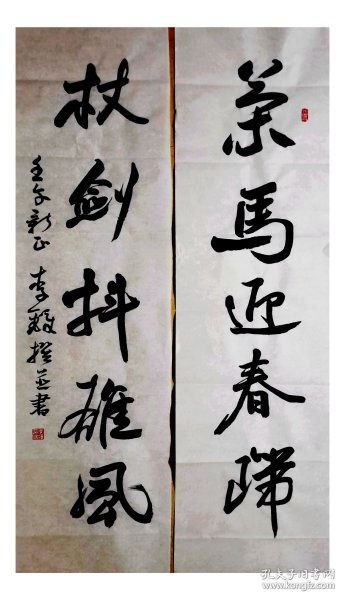 策馬迎春歸
杖劍抖雄風
壬午新正 李 撰並書
孔夫子旧书网
www.kongfz.com